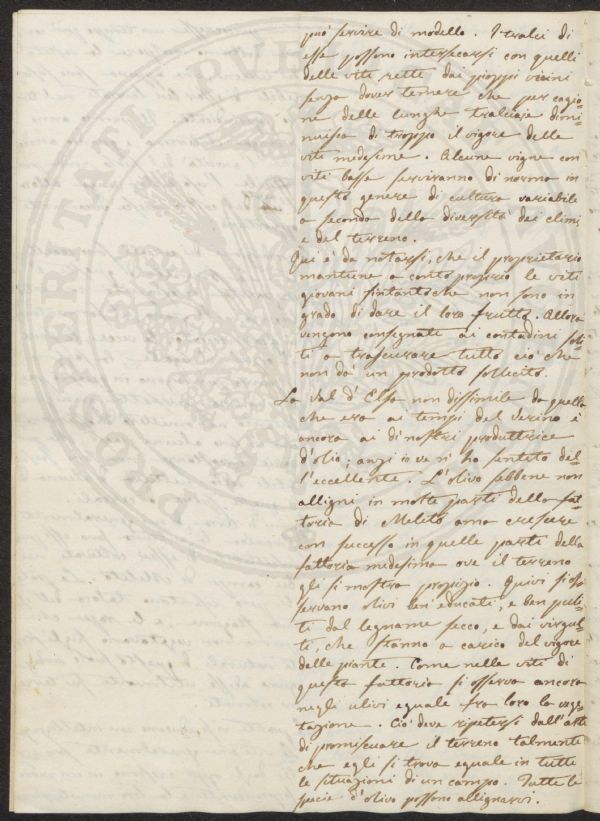 può servire di modello. I tralci di
esse possono intersecarsi con quelli
delle vite rette dai pioppi vicini
senza dover temere che per cagio-
ne delle lunghe tralciaje dimi-
nuisca di troppo il vigore delle
viti medesime. Alcune vigne con
viti basse serviranno di norma in
questo genere di cultura variabile
a seconda della diversità dei climi,
e del terreno.
Qui è da notarsi, che il proprietario
mantiene a conto proprio le viti
giovani fintantoche non sono in
grado di dare il loro frutto. Allora
vengono consegnate ai contadini soli-
ti a trascurare tutto ciò che
non dà un prodotto sollecito.
La Val d'Elsa non dissimile da quella
che era ai tempi del Verino è
ancora ai dì nostri produttrice
d'olio; anzi io ve ni ho sentito del-
l'eccellente. L'olivo sebbene non
alligni in molte parti della fat-
toria di Meleto ama crescere
con successo in quelle parti della
fattoria medesima ove il terreno
gli si mostra propizio. Quivi si os-
servano olivi ben educati, e ben puli-
ti dal legname secco, e dai virgul-
ti, che stanno a carico del vigore
delle piante. Come nelle viti di
questa fattoria si osserva ancora
negli ulivi eguale fra loro la vege-
tazione. Ciò deve ripetersi dall'arte
di promiscuare il terreno talmente
che egli si trova eguale in tutte
le situazioni di un campo. Tutte le
specie d'olivo possono allignarvi.
PROSPERITATI PVB